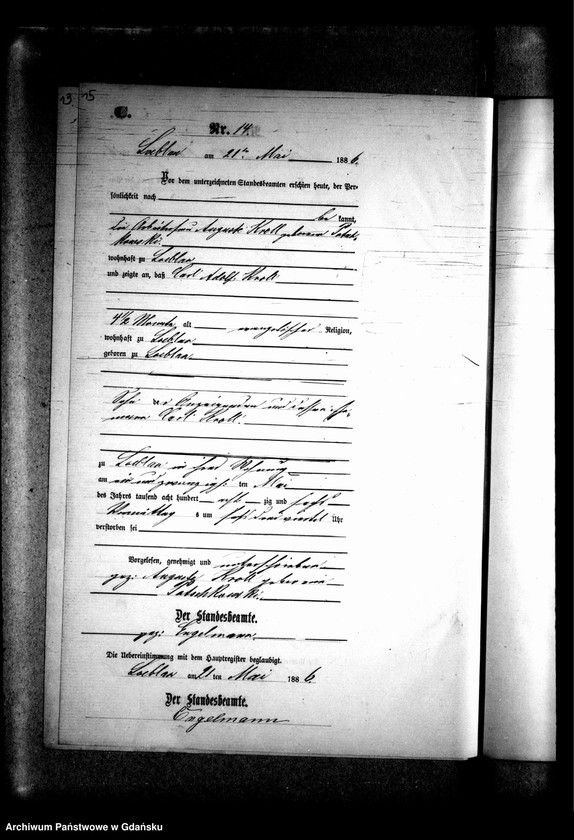 13 15
C.
Nr. 14.
Loeblau am 21ten Mai 1886.
Vor dem unterzeichneten Standesbeamten erschien heute, der Per-
sönlichkeit nach
be kannt,
die Arbeiterfrau Auguste Kroll geborene
wohnhaft zu Loeblau
und zeigte an, daß Carl Adolf Kroll
4 1/2 Monate alt evangelischer Religion,
wohnhaft zu Loeblau
geboren zu Loeblau
Sohn der Anzeigenden und dessen Ehe-
mann Carl Kroll.
zu Loeblau in ihrer Wohnung
am ein und zwanzigsten ten Mai
des Jahres tausend acht hundert acht zig und sechs
Vormittag s um Uhr
verstorben sei
Vorgelesen, genehmigt und unterschrieben
gez: Auguste Kroll geborene
Der Standesbeamte.
gez: Engelmann.
Die Uebereinstimmung mit dem Hauptregister beglaubigt.
Loeblau am 21 ten Mai 1886.
Der Standesbeamte.
Engelmann
Archiwum Państwowe w Gdańsku